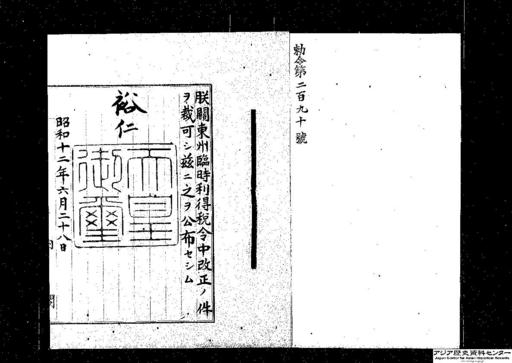 勅令第二百九十號
朕關東州臨時利得税令中改正ノ件
ヲ裁可シ茲ニ之ヲ公布セシム
裕仁
天皇
御璽
昭和十二年六月二十八日
アジア歴史資料センター
Japan Center for Asian Historical Records